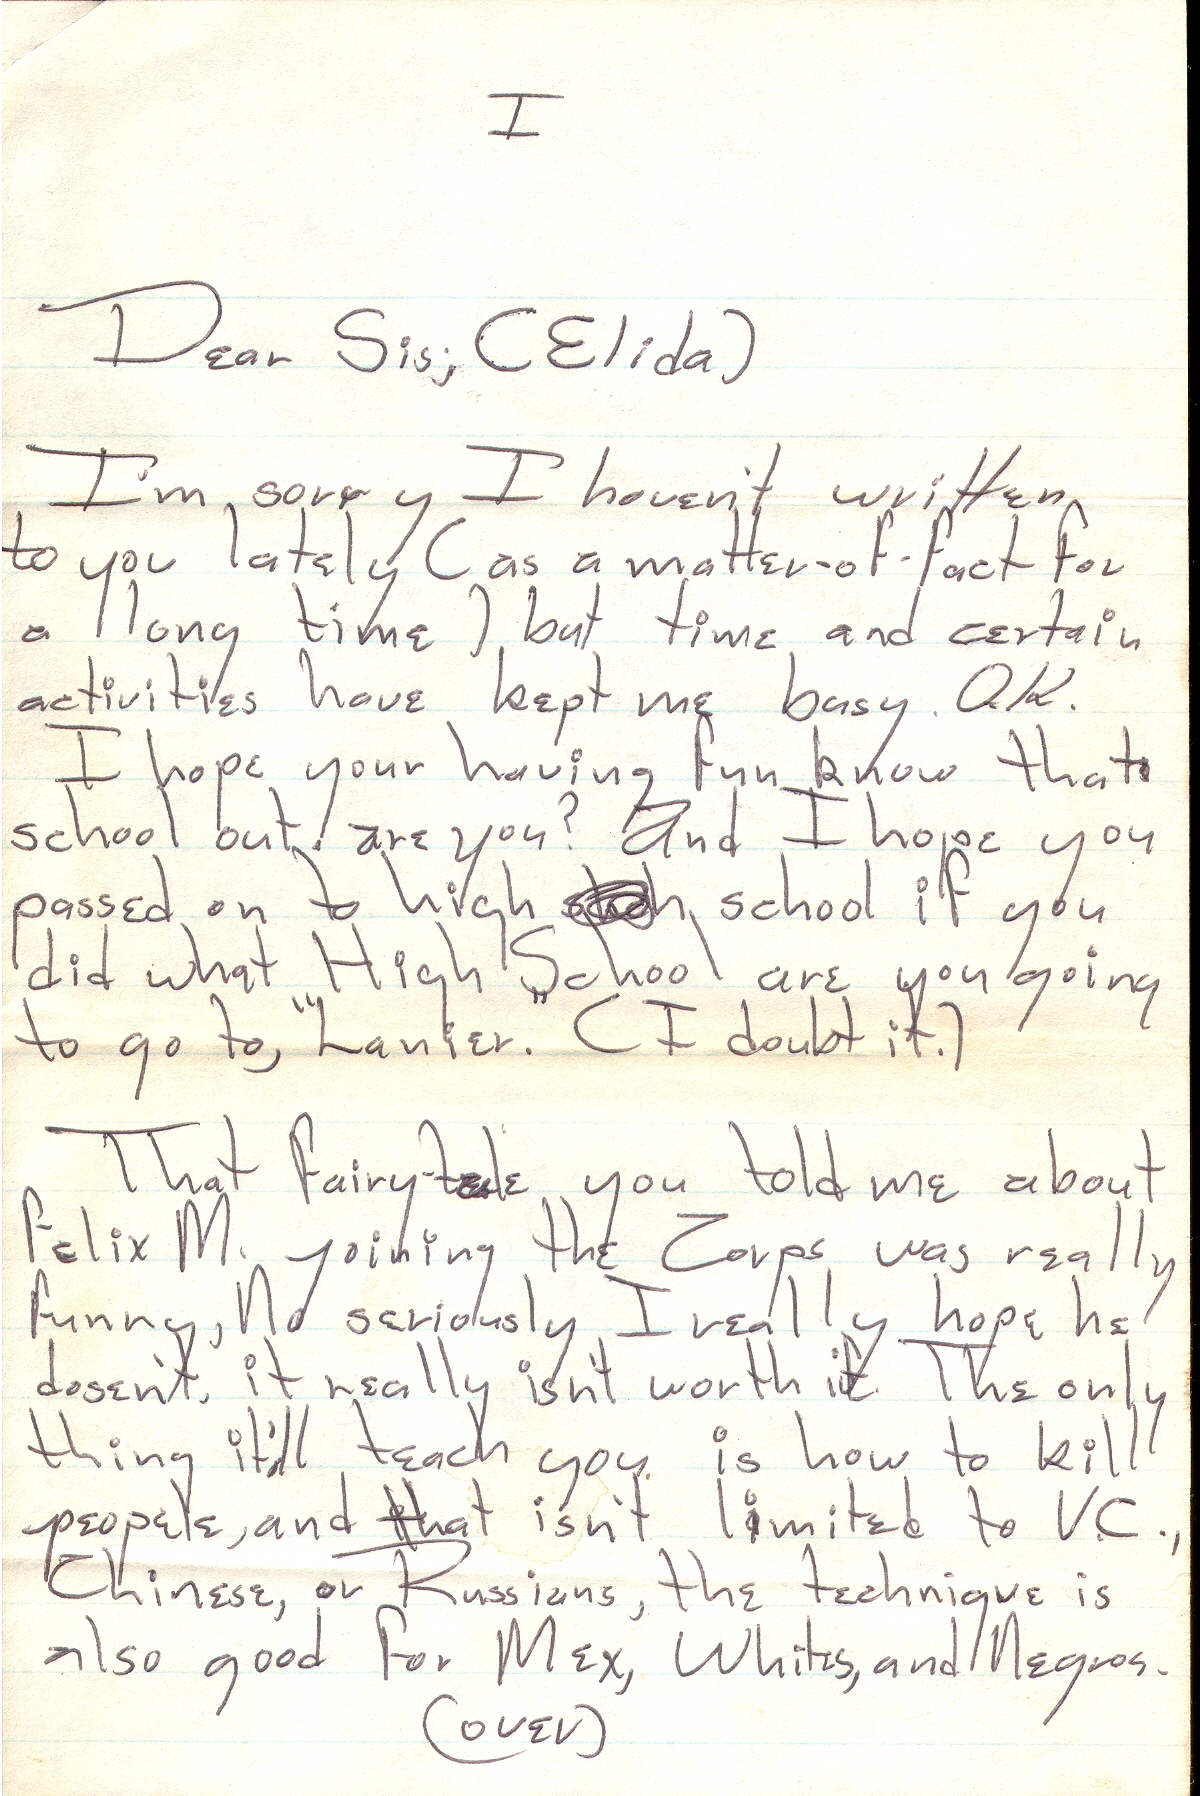 I
Dear Sis; (Elida)
I'm sorry I haven't written
to you lately (as a matter-of-fact for
a long time) but time and certain
activities have kept me busy. O.K.
I hope your having fun know that
school out, are you? And I hope you
passed on to high school if you
did what High School are you going
to go to, "Lanier." (I doubt it.)
That fairy-tale you told me about
Felix M. yoining the Corps was really
funny, No seriously I really hope he
dosen't, it really isn't worth it. The only
thing it'll teach you is how to kill
people, and that isn't limited to V.C.,
Chinese, or Russians, the technique is
also good for Mex, Whites, and Negros.
(over)